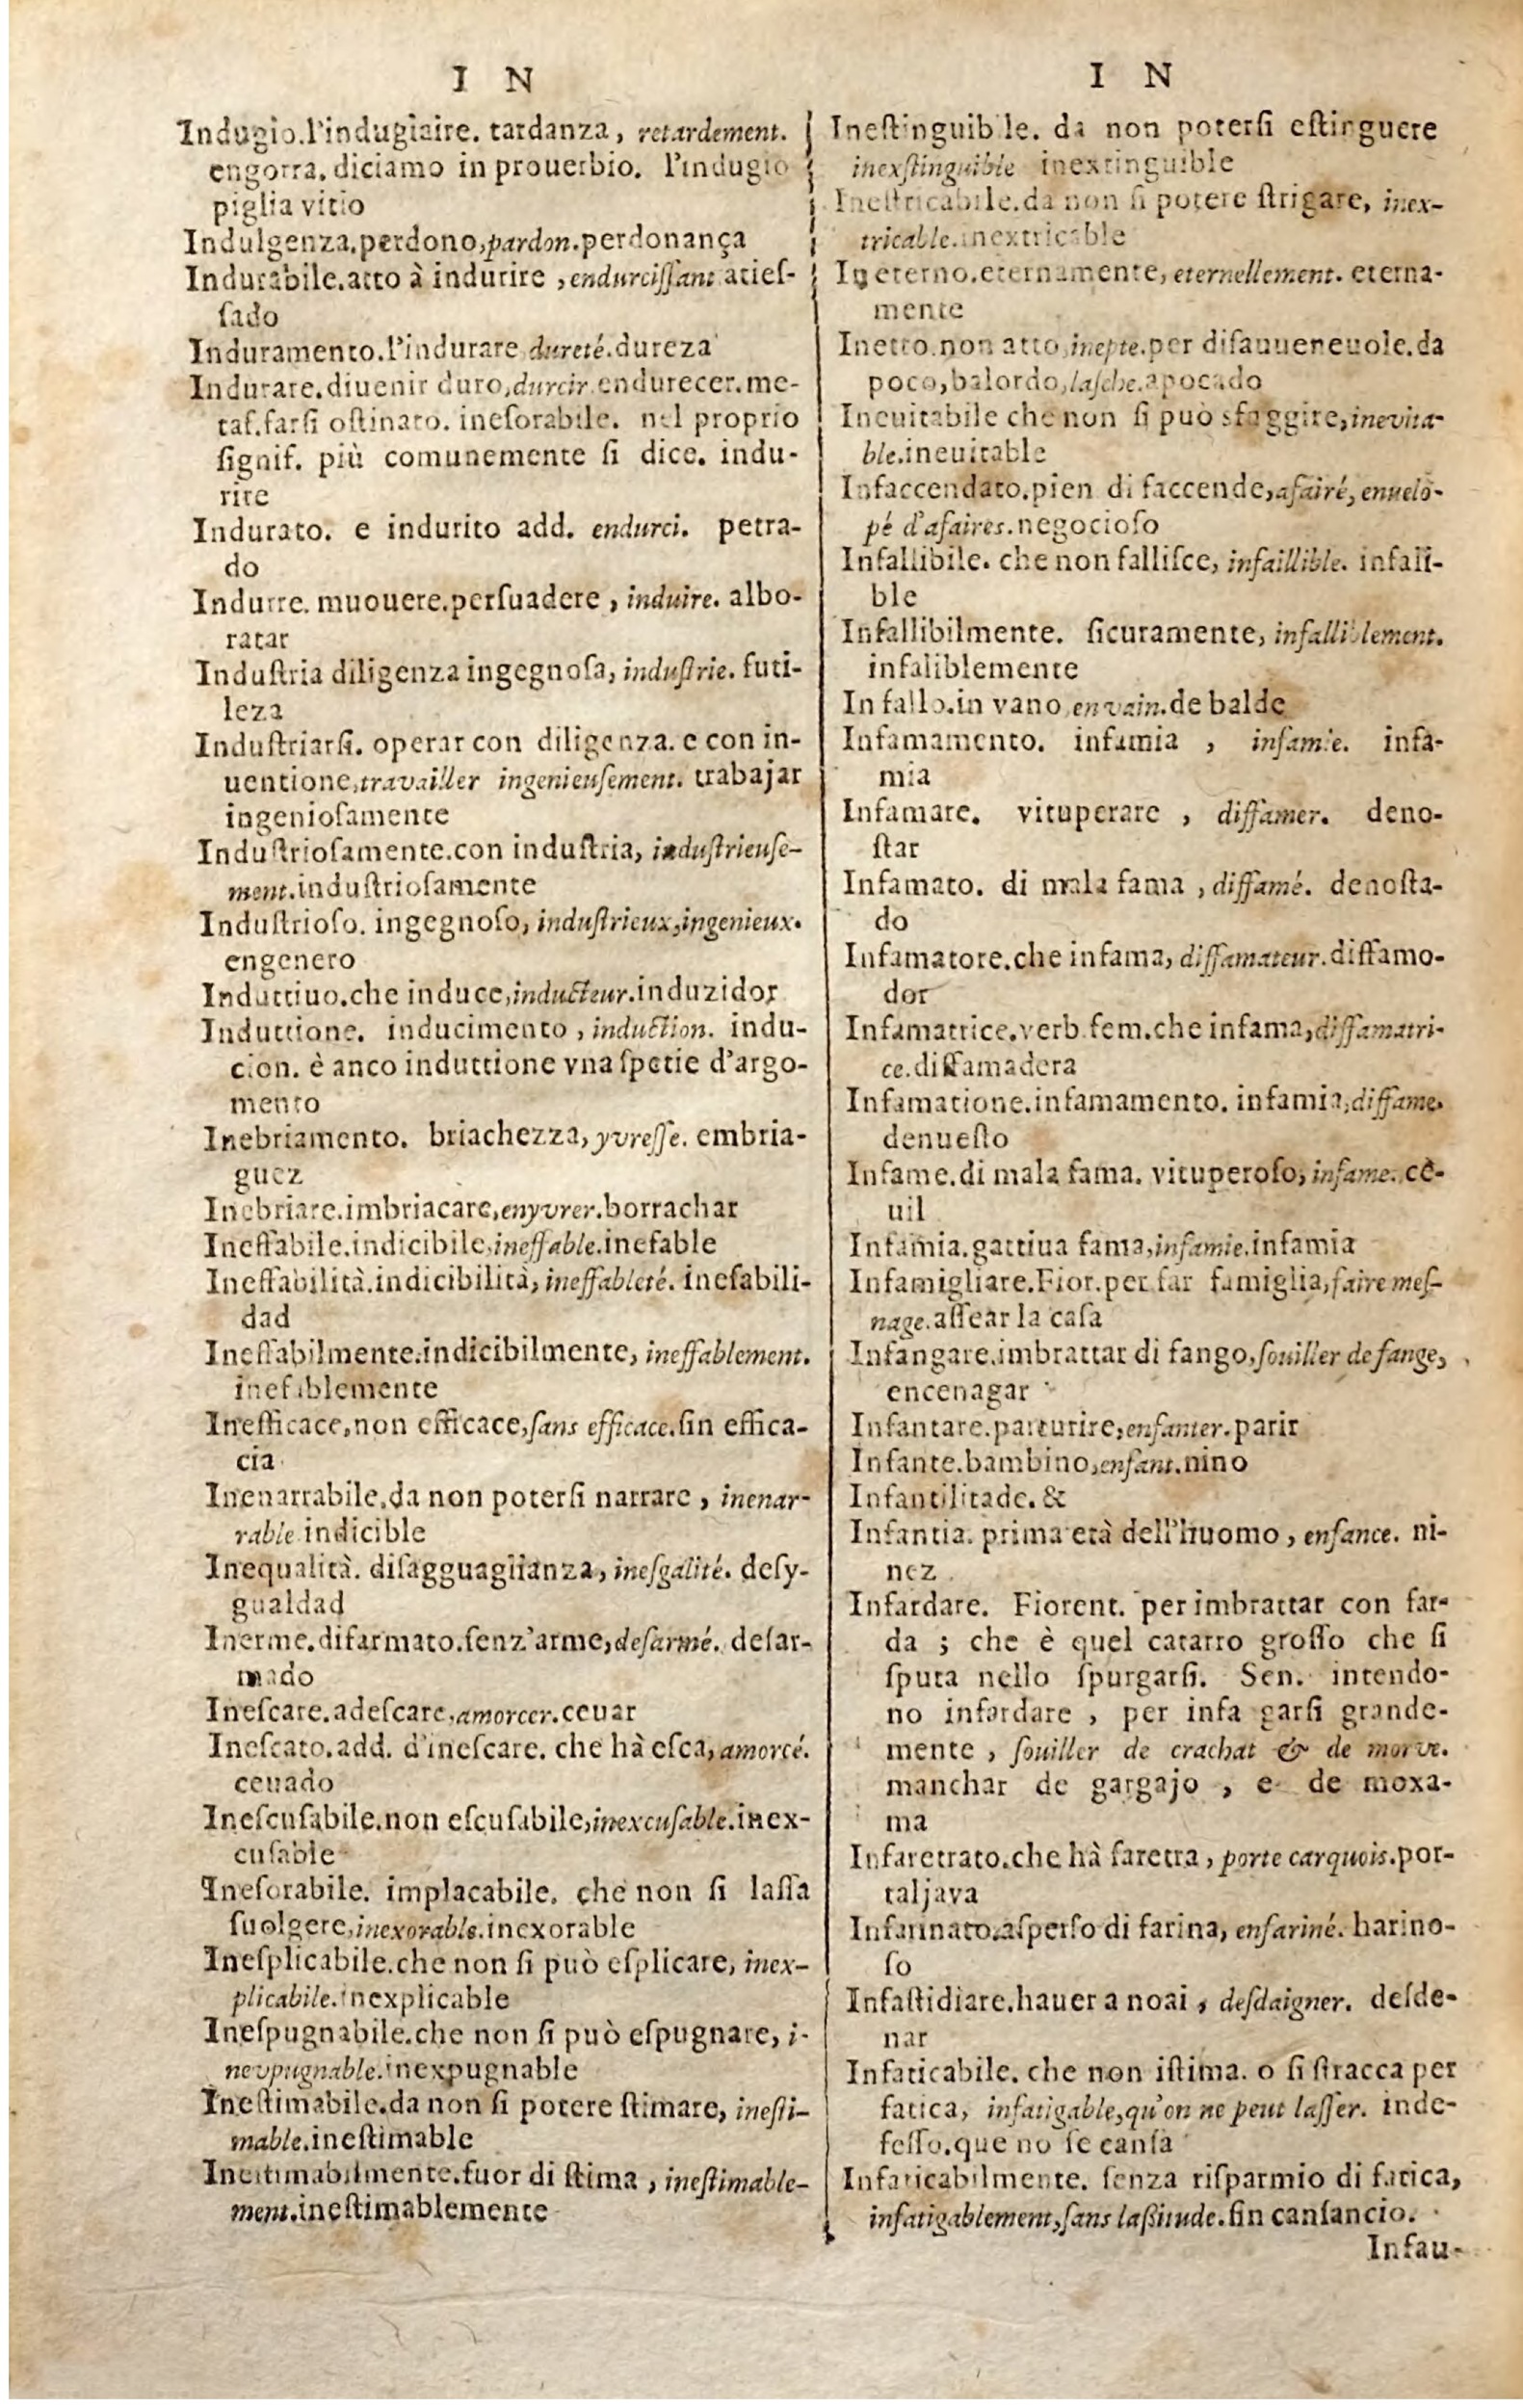 I N
Indugio.l'indugiaire. tardanza, retardement.
engorra. diciamo in prouerbio. l'indugio
piglia vitio
Indulgenza.perdono,pardon.perdonança
Indurabile.atto à indurire ,endurciſſant atieſ-
ſado
Induramento.l'indurare dureté.dureza
Indurare.diuenir duro,durcir.endurecer.me-
taf.farſi oſtinato. ineſorabile. nel proprio
ſignif. più comunemente ſi dice. indu-
rire
Indurato. e indurito add. endurci. petra-
do
Indurre. muouere.perſuadere , induire. albo-
ratar
Induſtria diligenza ingegnoſa, induſtrie. ſuti-
leza
Induſtriarſi. operar con diligenza. e con in-
uentione,travailler ingenieuſement. trabajar
ingenioſamente
Induſtrioſamente.con induſtria, induſtrieuſe-
ment.induſtrioſamente
Induſtrioſo. ingegnoſo, induſtrieux,ingenieux.
engenero
Induttiuo.che induce,inducteur.induzidor
Induttione. inducimento , induction. indu-
cion. è anco induttione vna ſpetie d'argo-
mento
Inebriamento. briachezza, yvreſſe. embria-
guez
Inebriare.imbriacare,enyvrer.borrachar
Ineffabile.indicibile,ineffable.inefable
Ineffabilità.indicibilità, ineffableté. inefabili-
dad
Ineffabilmente.indicibilmente, ineffablement.
inefablemente
Inefficace,non efficace,ſans efficace.ſin effica-
cia
Inenarrabile.da non poterſi narrare , inenar-
rable indicible
Inequalità. diſagguaglianza, ineſgalité. deſy-
gualdad
Inerme.diſarmato.ſenz'arme,deſarmé. deſar-
mado
Ineſcare.adeſcare,amorcer.ceuar
Ineſcato.add. d'ineſcare. che hà eſca, amorcé.
ceuado
Ineſcuſabile.non eſcuſabile,inexcuſable.inex-
cuſable
Ineſorabile. implacabile. che non ſi laſſa
ſuolgere,inexorable.inexorable
Ineſplicabile.che non ſi può eſplicare, inex-
plicabile.inexplicable
Ineſpugnabile.che non ſi può eſpugnare, i-
nevpugnable.inexpugnable
Ineſtimabile.da non ſi potere ſtimare, ineſti-
mable.ineſtimable
Ineſtimabilmente.fuor di ſtima , ineſtimable-
ment.ineſtimablemente
I N
Ineſtinguibile. da non poterſi eſtinguere
inexſtinguible inextinguible
Ineſtricabile.da non ſi potere ſtrigare, inex-
tricable.inextricable
In eterno.eternamente, eternellement. eterna-
mente
Inetto.non atto,inepte.per diſauueneuole.da
poco,balordo,laſche.apocado
Ineuitabile che non ſi può sfuggire,inevita-
ble.ineuitable
Infaccendato.pien di faccende,afairé, enuelo-
pé d'afaires.negocioſo
Infallibile. che non falliſce, infaillible. infali-
ble
Infallibilmente. ſicuramente, infalliblement.
infaliblemente
In fallo.in vano en vain.de balde
Infamamento. infamia , infamie. infa-
mia
Infamare. vituperare , diffamer. deno-
ſtar
Infamato. di mala fama , diffamé. denoſta-
do
Infamatore.che infama, diffamateur.diffamo-
dor
Infamatrice.verb fem.che infama,diffamatri-
ce.diffamadera
Infamatione.infamamento. infamia,diffame.
denueſto
Infame.di mala fama. vituperoſo, infame. cè-
uil
Infamia.gattiua fama,infamie.infamia
Infamigliare.Fior.per far famiglia,faire meſ-
nage.aſſear la caſa
Infangare.imbrattar di fango,ſouiller de fange,
encenagar
Infantare.parturire,enfanter.parir
Infante.bambino,enfant.nino
Infantilitade. &
Infantia. prima età dell'huomo , enfance. ni-
nez
Infardare. Fiorent. per imbrattar con far-
da ; che è quel catarro groſſo che ſi
ſputa nello ſpurgarſi. Sen. intendo-
no infardare , per infa garſi grande-
mente , ſouiller de crachat & de morve.
manchar de gargajo , e de moxa-
ma
Infaretrato.che hà faretra , porte carquois.por-
taljava
Infarinato.aſperſo di farina, enfariné. harino-
ſo
Infaſtidiare.hauer a noai , deſdaigner. deſde-
nar
Infaticabile. che non iſtima. o ſi ſtracca per
fatica, infatigable,qu'on ne peut laſſer. inde-
feſſo.que no ſe canſa
Infaticabilmente. ſenza riſparmio di fatica,
infatigablement,ſans laſſitude.ſin canſancio.
Infau-